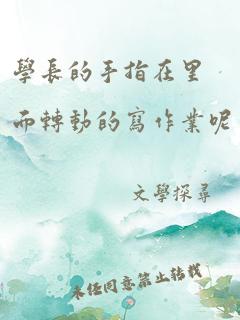 學長的手指在里
面轉動的寫作業呢
文學探尋
未經同意禁止轉載